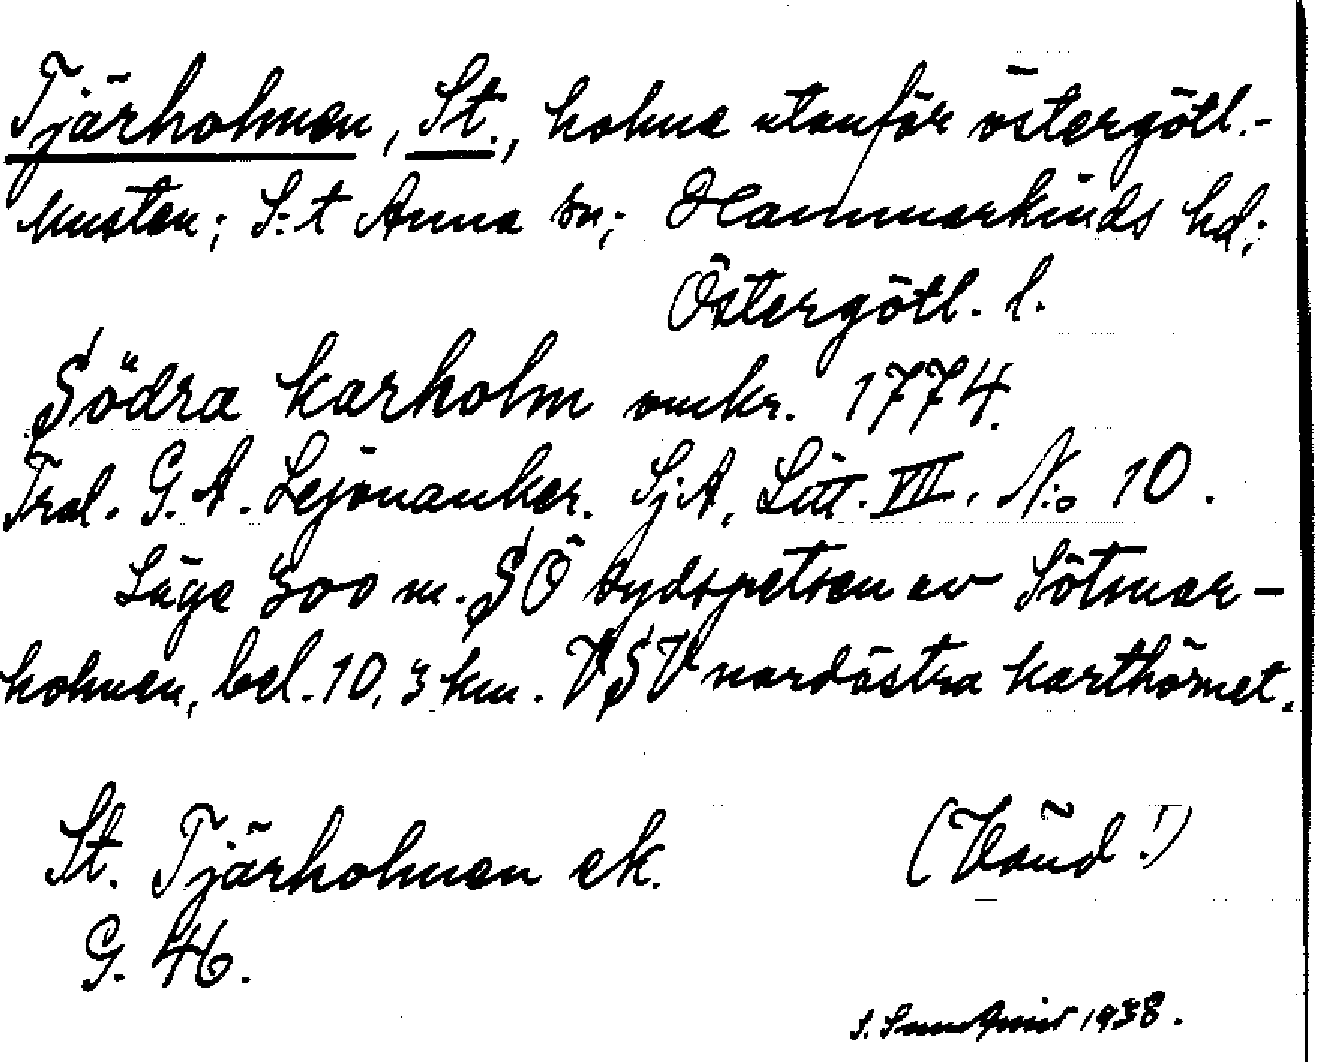 Tjärholmen, St., holme utanför östergötl.-
kusten; S:t Anna sn; Hammarkinds hd;
Östergötl. l.
Södra karholm omkr. 1774.
Trol. G. A. Lejonanker. SjA, Litt. VII. N:o 10.
Läge 300 m. SÖ sydspetsen av Sötmar-
holmen, bel. 10,3 km. VSV nordöstra karthörnet.
St. Tjärholmen ek.
G. 46.
(Vänd!)
1938.